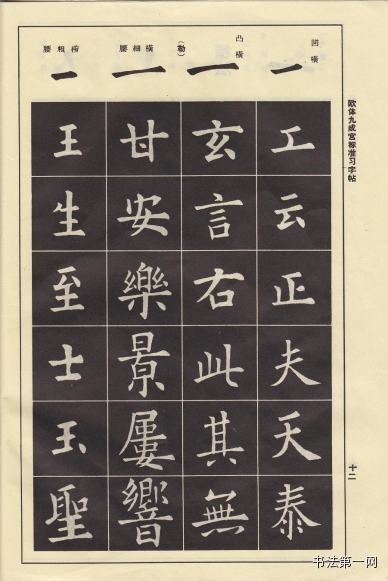 欧体九成宫标准习字帖
十二
凹橫
工
云
正
夫
天
泰
凸橫
(勒)
玄
言
右
此
其
無
橫細腰
甘
安
樂
景
屢
響
橫粗腰
王
生
至
士
玉
聖
书法第一网